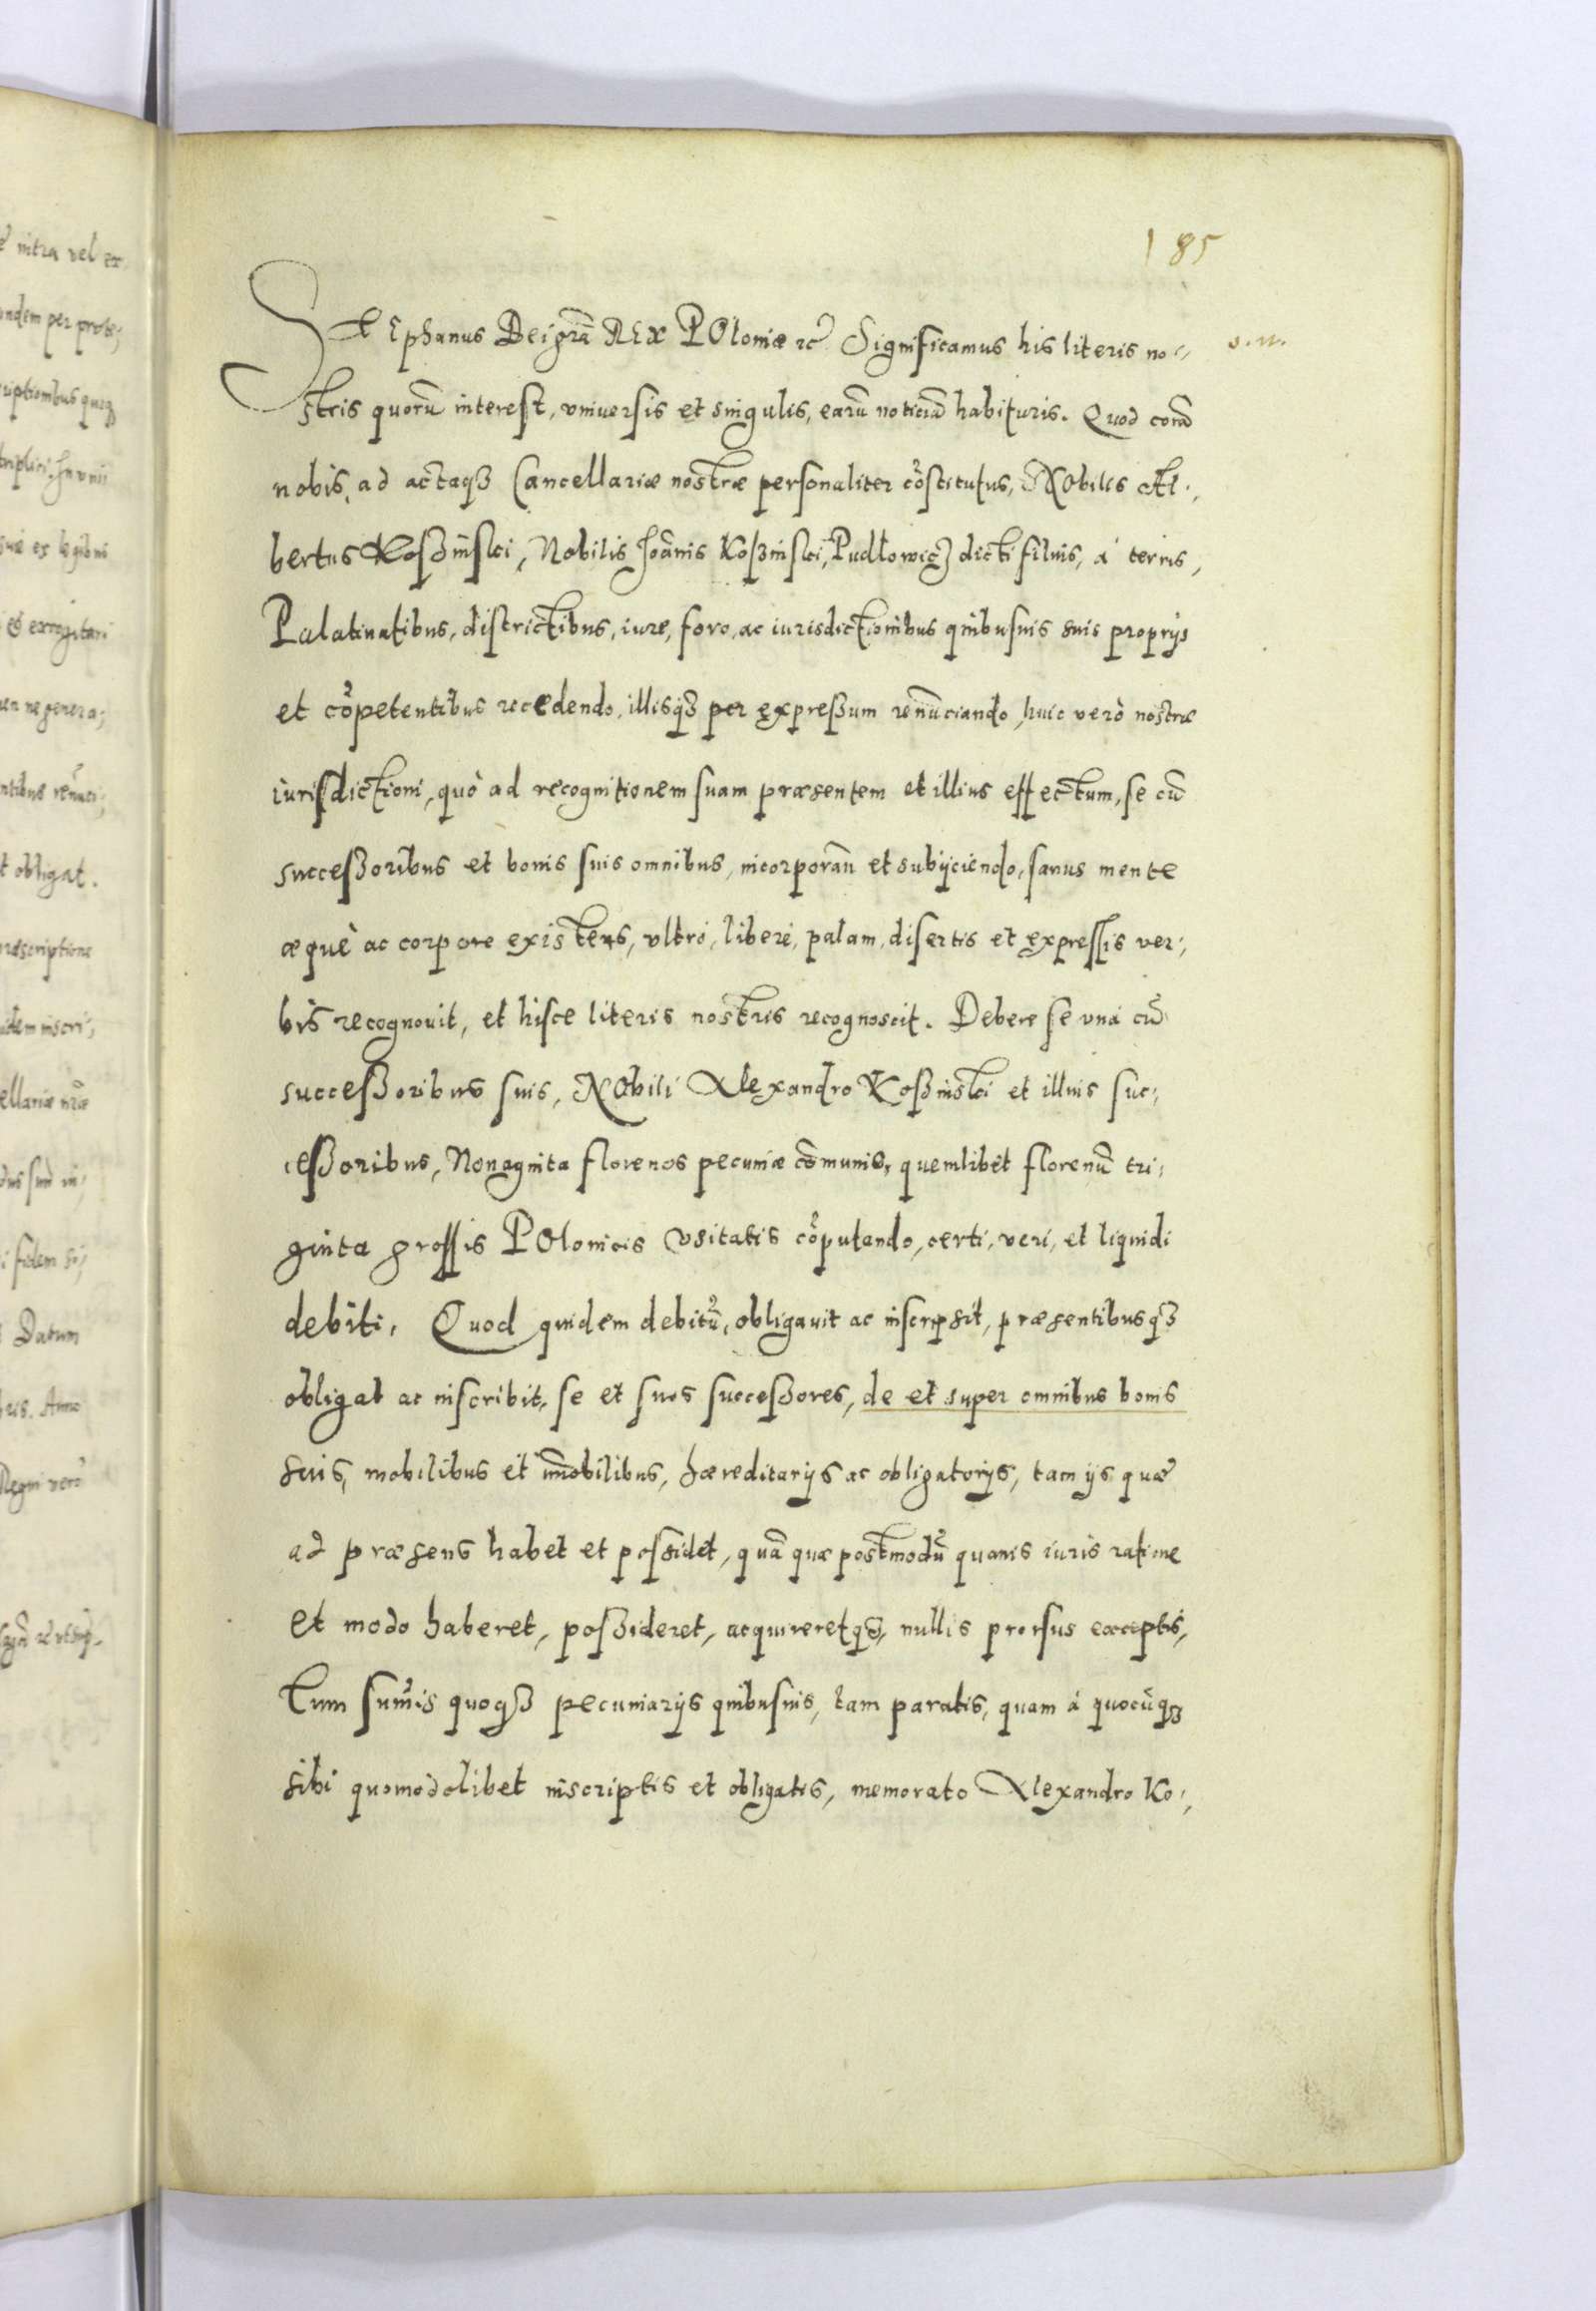 185
StEphanus Dei grã REx POloniæ ꝛc̃ Significamus his literis no-
s. n.
stris quorũ interest, vniuersis et singulis, earũ noticiã habituris. Quod corã
nobis, ad actaqꝫ Cancellariæ nostræ personaliter cõstitutus, NObilis Al-
bertus Koßinski, Nobilis Joãnis Koßinski, Pudłowicz dicti filius, à terris,
Palatinatibus, districtibus, iure, foro, ac iurisdictionibus quibusuis suis proprijs
et cõpetentibus recedendo, illisqꝫ per expreßum renũciando, huic verò nostræ
iurisdictioni, quò ad recognitionem suam præsentem et illius effectum, se cũ
succeßoribus et bonis suis omnibus, incorporañ et subijciendo, sanus mente
æquè ac corpore existens, vltrò, liberè, palam, disertis et expressis ver-
bis recognouit, et hisce literis nostris recognoscit. Debere se vnà cũ
succeßoribus suis, NObili Alexandro Koßinski et illius suc-
ceßoribus, Nonaginta florenos pecuniæ cõmunis, quemlibet florenũ tri-
ginta grossis POlonicis vsitatis cõputando, certi, veri, et liquidi
debiti. Quod quidem debitũ, obligauit ac inscripsit, præsentibusqꝫ
obligat ac inscribit, se et suos succeßores, de et super omnibus bonis
suis, mobilibus et im̃obilibus, hæreditarijs ac obligatorijs, tam ijs quæ
ad præsens habet et possidet, quã quæ postmodũ quouis iuris ratione
et modo haberet, poßideret, acquireretqꝫ, nullis prorsus exceptis,
tum sum̃is quoqꝫ pecuniarijs quibusuis, tam paratis, quam à quocũqꝫ
sibi quomodolibet inscriptis et obligatis, memorato Alexandro Ko-